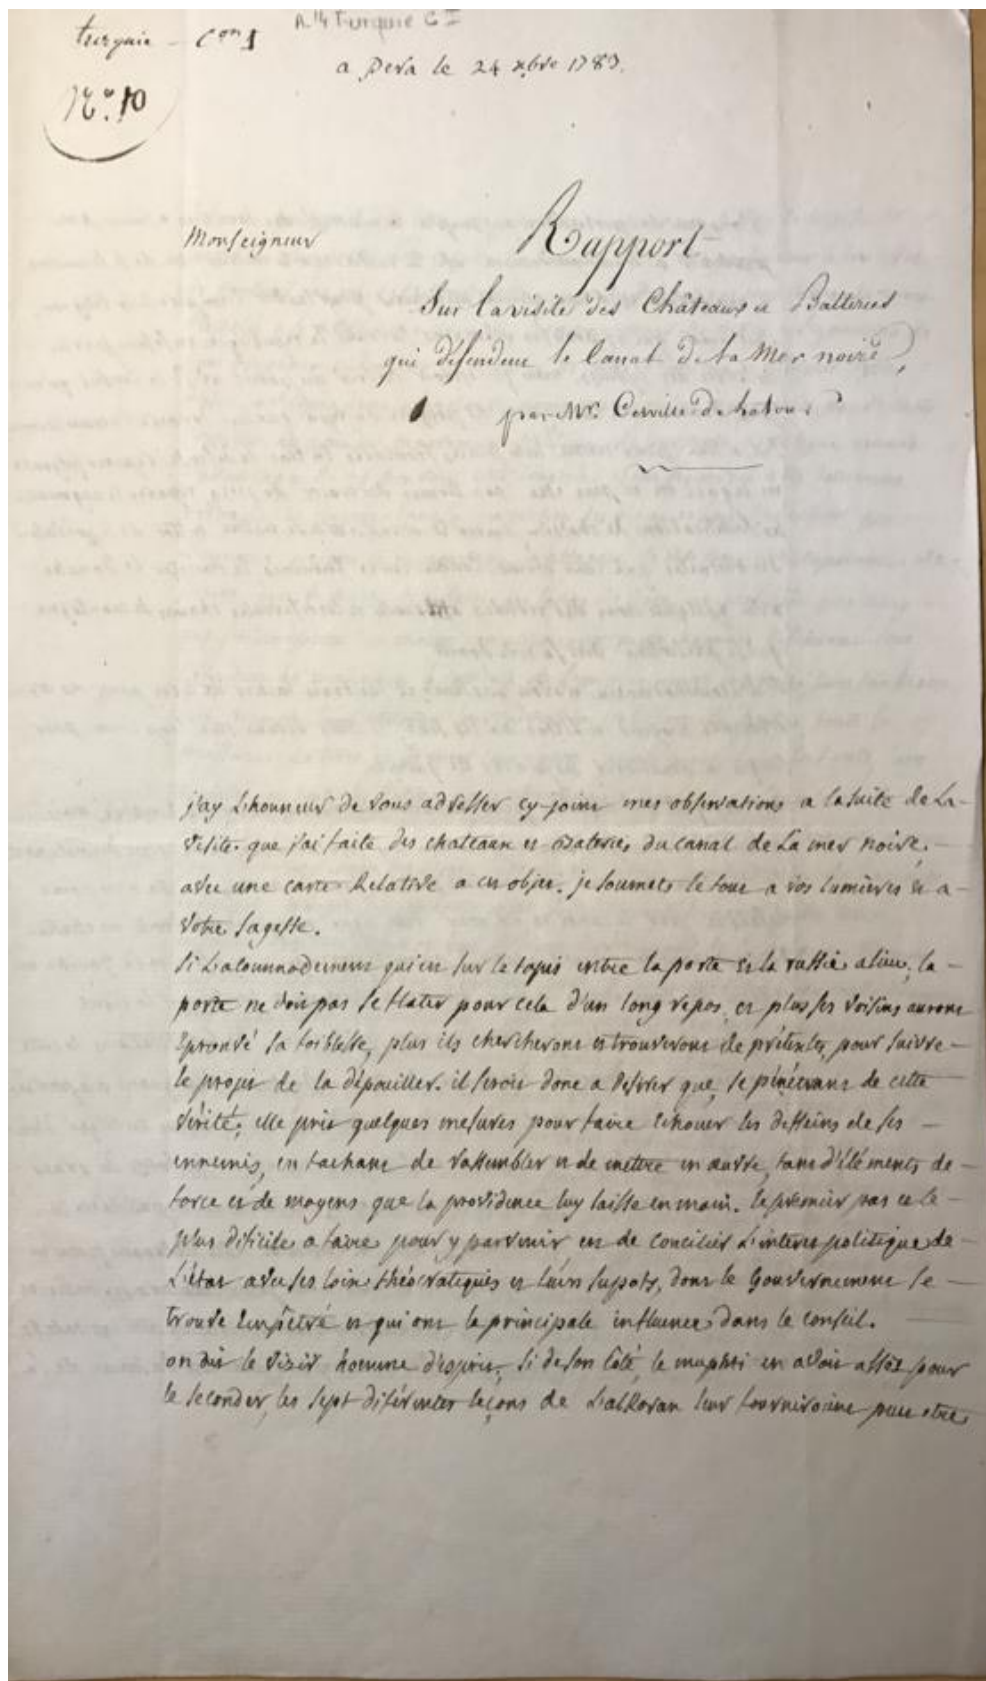 A 14 Turquie C I
turquie - Con 1
a pera le 24 xbre 1783.
No. 10
Monseigneur
Rapport
Sur la visite des Châteaux et Batteries
qui défendent le Canal de la Mer noire,
par Mr.
j'ay L'honneur de vous adresser cy-joint mes observations a la suite de La-
visite que j'ai faite des chateaux et Bateries du canal de La mer noire.-
avec une carte Relative a cet objet. je soumets le tout a vos lumieres et a-
votre sagesse.
si L'acommodement qui est sur le tapis entre la porte et la russie a lieu, la-
porte ne doit pas se flater pour cela d'un long repos, et plus ses voisins auront
Eprouvé sa foiblesse, plus ils chercheront et trouveront de prétextes pour suivre-
le projet de la dépouiller. il seroit donc a desirer que, se pénétrant de cette
vérité, elle prit quelques mesures pour faire Echouer les desseins de ses-
ennemis, en tachant de rassembler et de mettre en œuvre, tant d'éléments de-
force et de moyens que la providence luy laisse en main. le premier pas et le-
plus dificile a faire pour y parvenir est de concilier L'interet politique de-
L'état avec ses loix théocratiques et leurs supots, dont le Gouvernement se-
trouve Empêtré et qui ont la principale influence dans le conseil.
on dit le vizir homme d'esprit, si de son coté le muphti en avoit assez pour
le seconder, les sept diférentes leçons de L'alkoran leur fourniroient peut etre